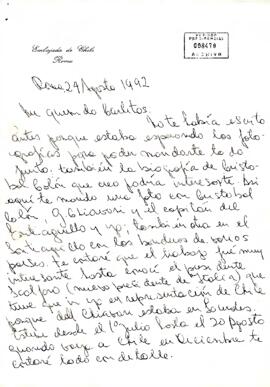 Embajada de Chile
Roma
PERIODO
PRESIDENCIAL
008478
ARCHIVO
Roma 29 Agosto 1992
Mi querido Carlitos.
No te había escrito
antes porque estaba esperando las foto-
grafías para poder mandarte todo
junto. también la biografía de Cristo-
bal Colón que creo podría interesarte. Asi
aquí te mando una foto con Cristobal
Colón. y el capitán del
y yo, también otra en el
con las banderas de varios
países. Te contaré que el trabajo fué muy
interesante hasta conocí el presidente
Scalfaro (nuevo presidente de Italia) que
tuve que ir yo en representación de Chile
porque el estaba en Lourdes.
Estuve desde el 1º Julio hasta el 20 Agosto
cuando vaya a Chile en Diciembre te
contaré todo con detalle.